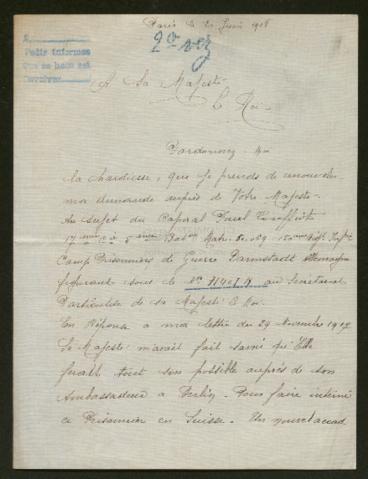 Paris le 20 Juin 1918
2ª vez
Pedir informes
que se hace est
Devolver
A Sa Majesté
Le Roi
Pardonnez-moi
la hardiesse, que je prends de renouveler
ma demande auprès de Votre Majesté
Au sujet du Caporal
Camp Prisonniers de Guerre Darmstadt Allemagne
figurant sous le au Secrétariat
Particulier de Sa Majesté le Roi.
En Réponse a ma lettre du 29 Novembre 1917
Sa Majesté m'avait fait savoir qu'Elle
ferait tout son possible auprès de son
Ambassadeur a Berlin. Pour faire interné
ce Prisonnier en Suisse. Un nouvel accord